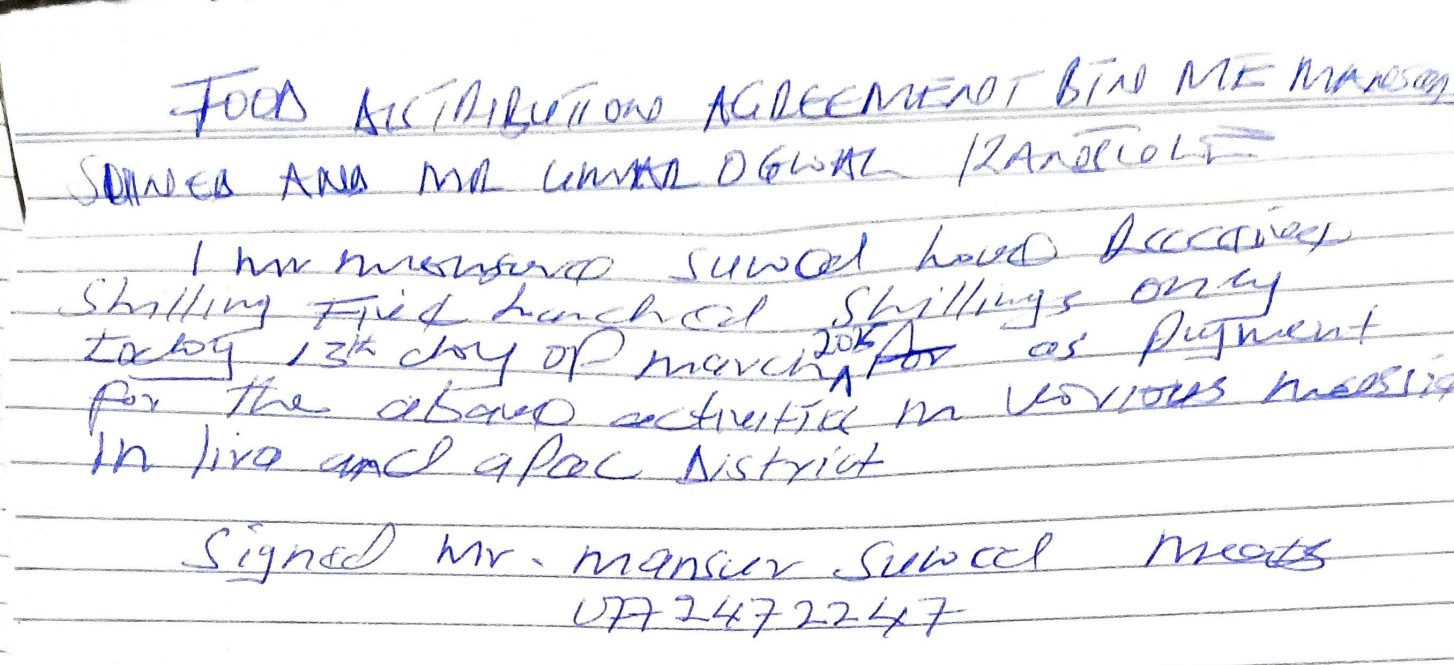 FOOD DISTRIBUTION AGREEMENT BTN ME MANSOOR
SUWED AND MR UMAR OGWAL
I Mr mansur suwed have Received
Shilling Five hundred Shillings only
today 13th day of march 2015 for as payment
for the above activities in various
in lira and apac District
Signed Mr. mansur Suwed
0772472247